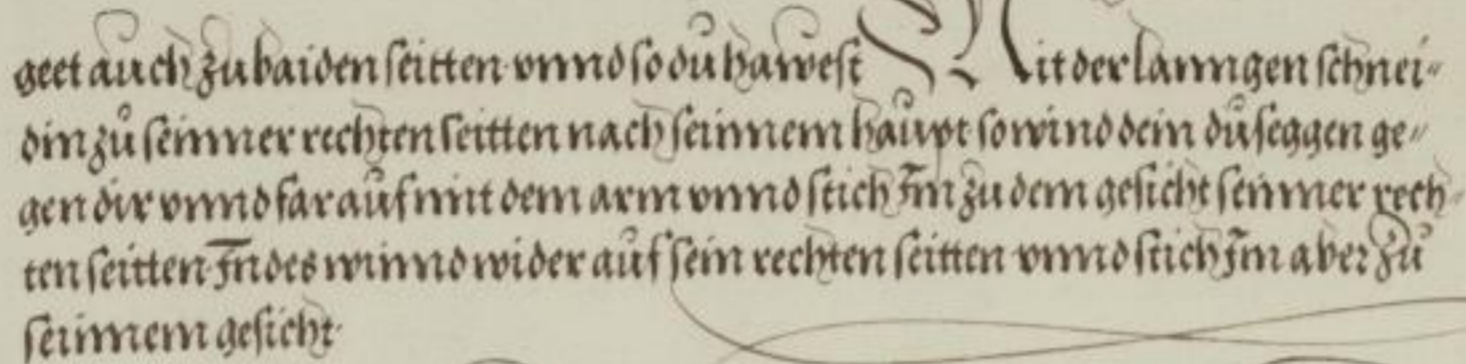 geet auch zu baiden seitten vnnd so du hawest Mit der lanngen schnei-
din zů seinner rechten seitten nach seinnem haupt so wind dein duseggen ge-
gen dir vnnd far auf mit dem arm vnnd stich Im zu dem gesicht seinner rech-
ten seitten Indes winnd wider auf sein rechten seitten vnnd stich Im aber zů
seinnem gesicht